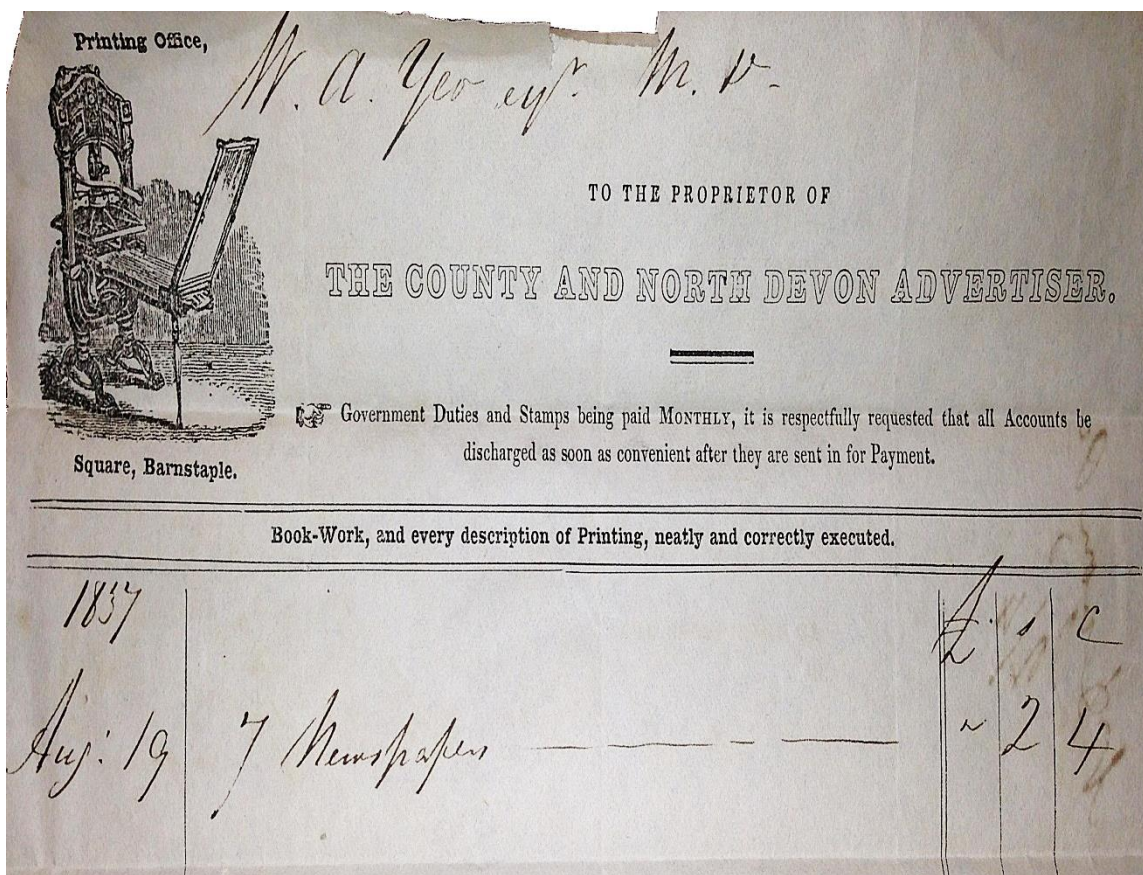 Printing Office,
W. A. Yeo esqr. M. P.
TO THE PROPRIETOR OF
THE COUNTY AND NORTH DEVON ADVERTISER.
☞ Government Duties and Stamps being paid MONTHLY, it is respectfully requested that all Accounts be
discharged as soon as convenient after they are sent in for Payment.
Square, Barnstaple.
Book-Work, and every description of Printing, neatly and correctly executed.
1837 £ s
Aug: 19 7 Newspapers — — — — " 2 4